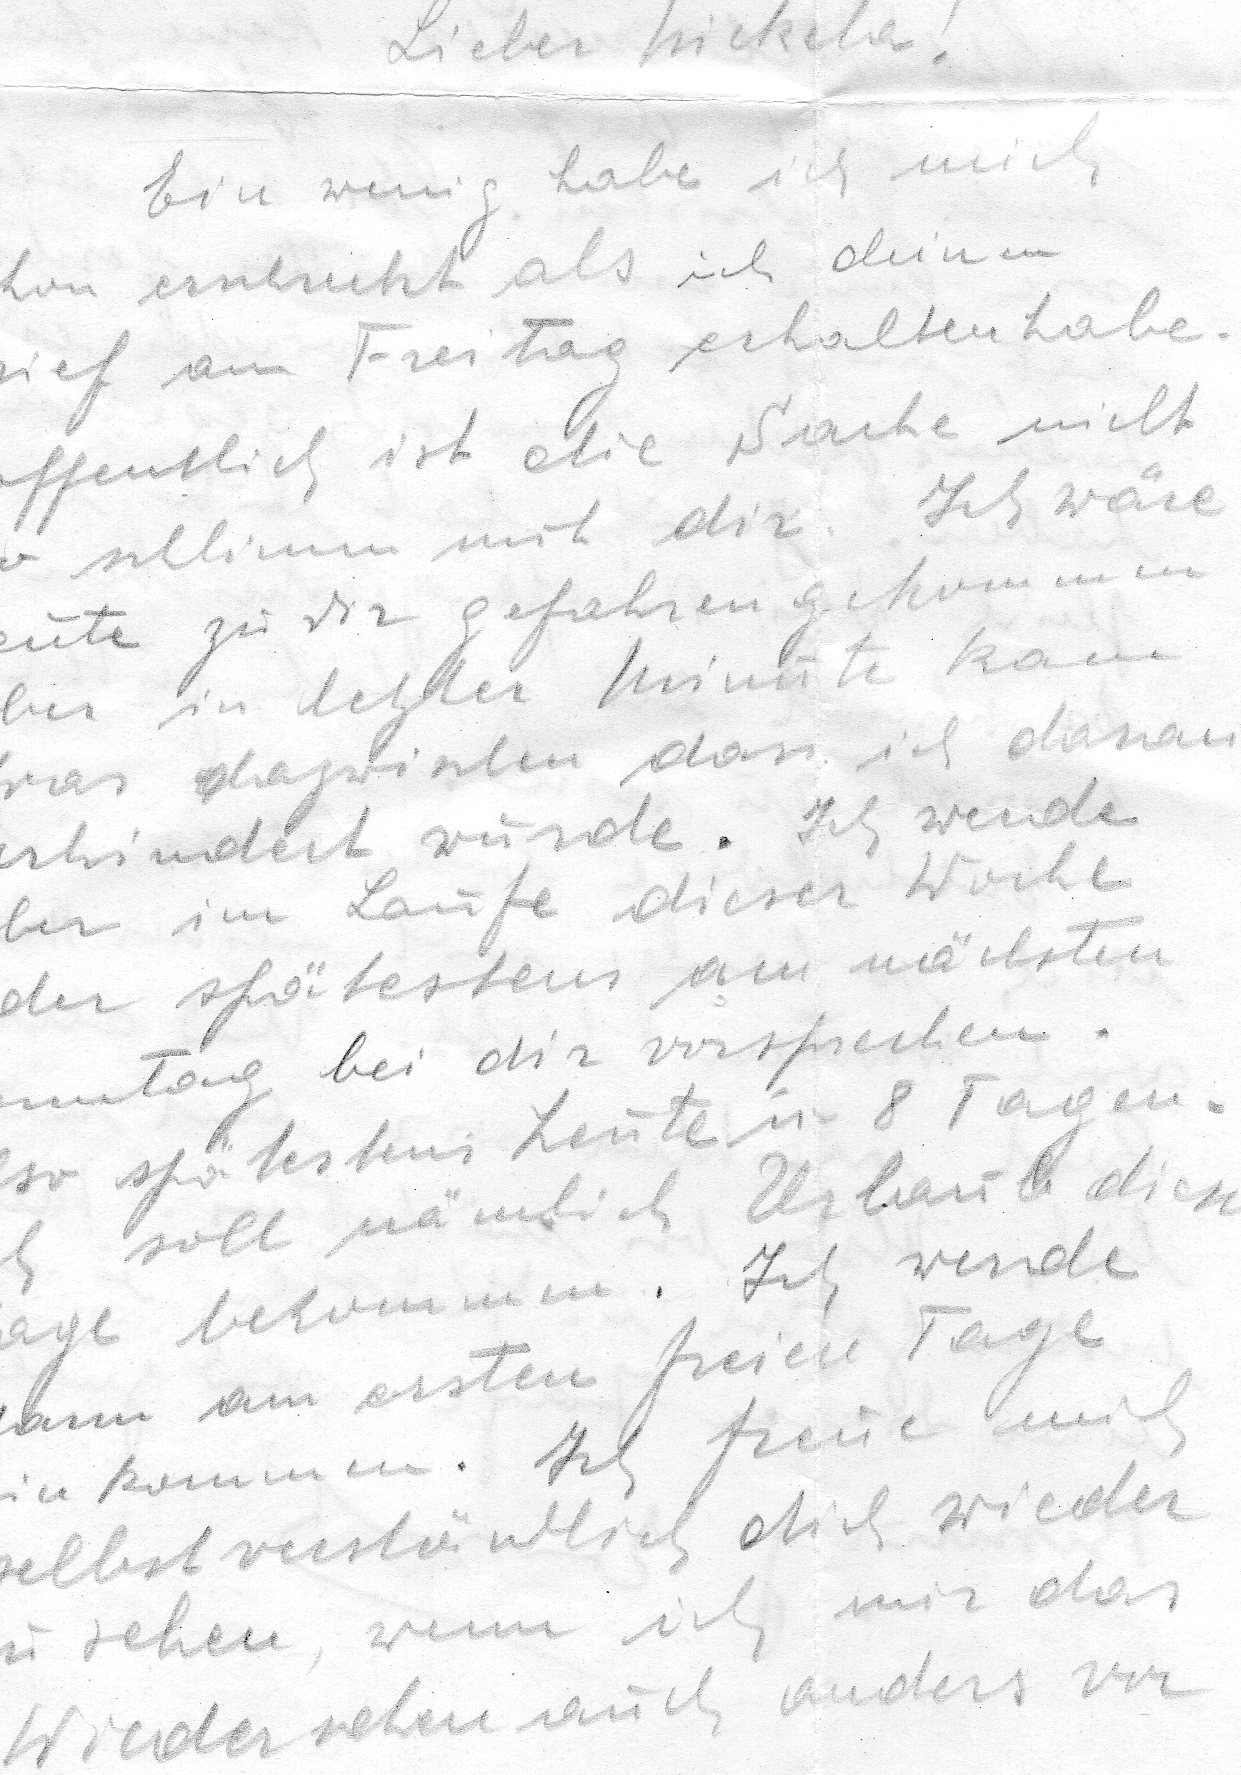 Lieber Mickela!
Ein wenig habe ich mich
hon erschreckt als ich deinen
rief am Freitag erhalten habe.
offentlich ist die Sache nicht
o schlimm mit dir. Ich wäre
eute zu dir gefahren gekommen
ber in letzter Minute kam
was dazwischen dass ich daran
erhindert wurde. Ich werde
ber im Laufe dieser Woche
der spätestens am nächsten
onntag bei dir vorsprechen.
lso spätestens heute in 8 Tagen.
ch soll nämlich Urlaub diese
age bekommen. Ich werde
dann am ersten freien Tage
in kommen. Ich freue mich
selbstverständlich dich wieder
u sehen, wenn ich mir das
Wiedersehen auch anders vor